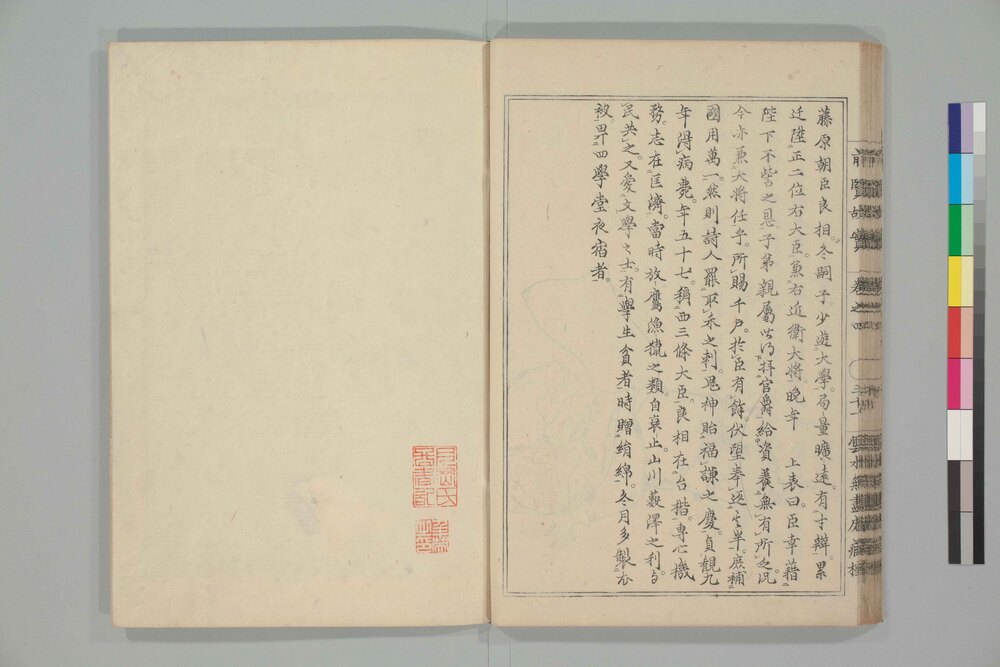 藤原朝臣良相冬嗣子。少遊大學。局量曠遠。有才辯。累
迁陞正二位右大臣。兼右近衛大將。晚年 上表曰。臣幸藉
陛下不訾之息。子弟親屬皆得拝官爵。給資養無有所乏。況
今亦兼大將任乎。所賜千戸。於臣有餘。伏望奉返其半。庶補
國用萬一。然則詩人罷取禾之刺。鬼神貽福謙之慶。貞觀九
年得病薨。年五十七。稱西三條大臣。良相在台揩。專心機
務。志在匡濟。當時放鷹漁獵之類自衰止。山川藪澤之利与
民共之。又愛文學之士。有學生貧者。時贈絹綿。冬月多製衣
被。畀四學堂夜宿者。
前賢故實 卷之四
三十一
雲水無盡庵藏板